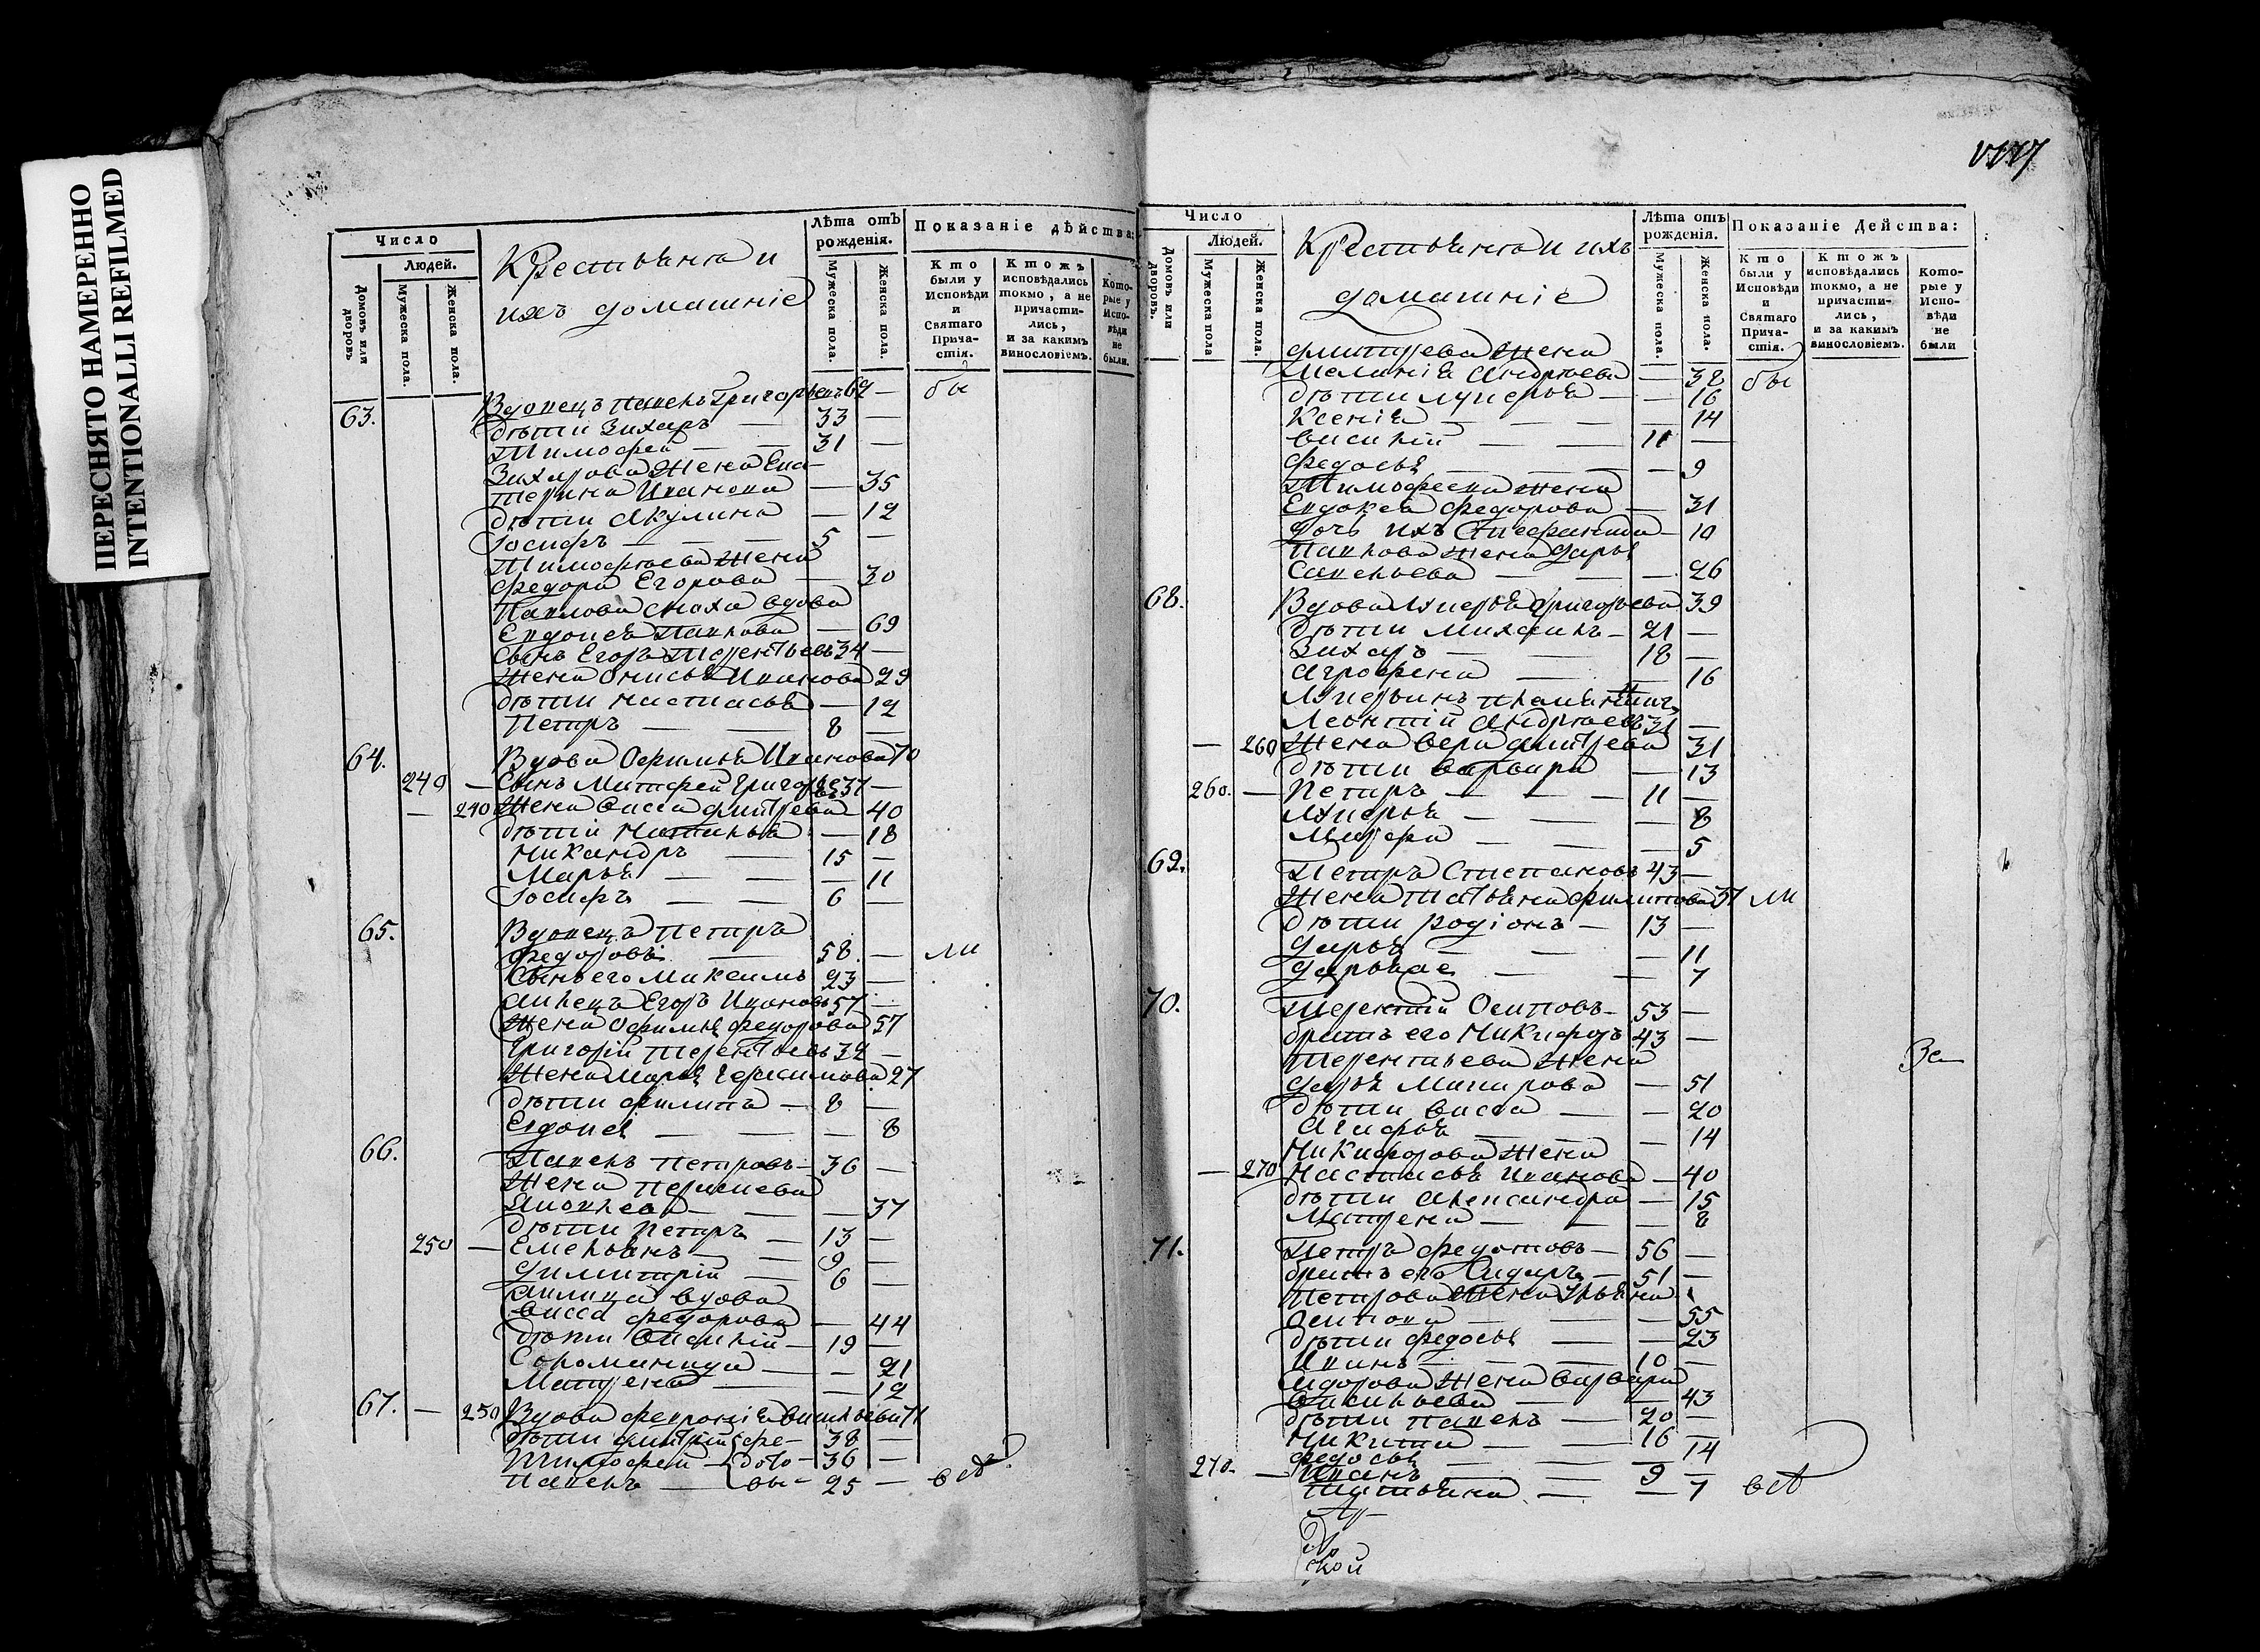 ПЕРЕСНЯТО НАМЕРЕННО
INTENTIONALLI REFILMED
Число
Людей.
Домовъ или дворовъ
Мужеска пола.
Женска пола.
Крестьяна и
ихъ домашнiе
Лѣта отъ рожденiя.
Мужеска пола.
Женска пола.
Показанiе дѣйства:
Кто были у Исповѣди и Святаго Прича-стiя.
Ктожъ исповѣдались токмо, а не причасти-лись, и за какимъ винословiемъ.
Кото-рые у Испо-вѣди не были.
63. Вдовецъ Павелъ Григорьевъ 69 — бы
дѣти Захаръ — 33 —
Тимофей — 31 —
Захарова жена Ека-
терина Иванова — 35
дѣти Акулина — 12
Iосифъ — 5 —
Тимофѣева жена
Федора Егорова — 30
Павлова сноха вдова
Евдокея Павлова — 69
сынъ Егоръ Терентьевъ 34 —
жена Анисья Иванова 29
дѣти Настасья — 12
Петръ — 8 —
64. Вдова Офимья Иванова 70
249 — Сынъ Матфей Григорьевъ 37 —
— 240 Жена Васса Дмитрева 40
дѣти Наталья — 18
Никандръ — 15 —
Марья — 11
Iосифъ — 6 —
65. Вдовецъ Петръ
Федоровъ — 58. — ли
Сынъ его Максимъ 23 —
Жилецъ Егоръ Ивановъ 57 —
Жена Офимья Федорова 57
Григорiй Терентьевъ 32 —
Жена Марья Герасимова 27
дѣти Филипъ — 8 —
Евдокея — 8
66. Павелъ Петровъ — 36 —
Жена
— 37
дѣти Петръ — 13 —
250 — Емельянъ — 9 —
Димитрiй — 6 —
вдова
Васса Федорова — 44
дѣти Василiй — 19 —
Соломанида — 21
Матрена — 12
67. — 250 Вдова Феврониiя Васильева 71
дѣти Дмитрiй Фе- 38 —
Тимофей — дото- 36 —
Павелъ — вы — 25 — всѣ
Число
Людей.
Домовъ или дворовъ.
Мужеска пола
Женска пола.
Крестьяна и ихъ
домашнiе
Лѣта отъ рожденiя.
Мужеска пола.
Женска пола.
Показанiе Действа:
Кто были у Исповѣди и Святаго Прича-стiя.
Ктожъ исповѣдались токмо, а не причасти-лись, и за какимъ винословiемъ.
Кото-рые у Испо-вѣди не были
Дмитрева жена
Меланiя Андреева — 32 бы
дѣти Лукерья — 16
Ксенiя — 14
Василiй — 11 —
Федосья — 9
Тимофеева жена
Евдокея Федорова — 31
дочь ихъ Стефанида — 10
Павлова жена Дарья
Савельева — 26
68. Вдова Лукерья Григорьева 39
дѣти Михаилъ — 21 —
Захаръ — 18 —
Агрофена — 16
Лукерьинъ племянникъ
Леонтiй Андреевъ 31 —
— 260 Жена Вера Дмитрева 31
дѣти Варвара — 13
260. — Петръ — 11 —
Лукерья — 8
Марфа — 5
69. Петръ Степановъ 43 —
Жена Татьяна Филипова 37 ли
дѣти Родiонъ — 13 —
Дарья — 11
Дарья 2 — 7
70. Терентiй Осиповъ — 53 —
братъ его Никифоръ 43 —
Терентьева жена
Дарья Макарова — 51
дѣти Васса — 20
Агафья — 14
Никифорова жена
— 270 Настасья Иванова — 40
дѣти Александра — 15
Матрена — 8
71. Петръ Федотовъ — 56 —
братъ его Сидаръ — 51 —
Петрова жена Ульяна
Осипова — 55
дѣти Федосья — 23
Иванъ — 10 —
Сидорова жена Варвара
Васильева — 43
дѣти Павелъ — 20 —
Никита — 16 —
Федосья — 14
270. — Иванъ — 9 —
Татьяна — 7 всѣ
ской